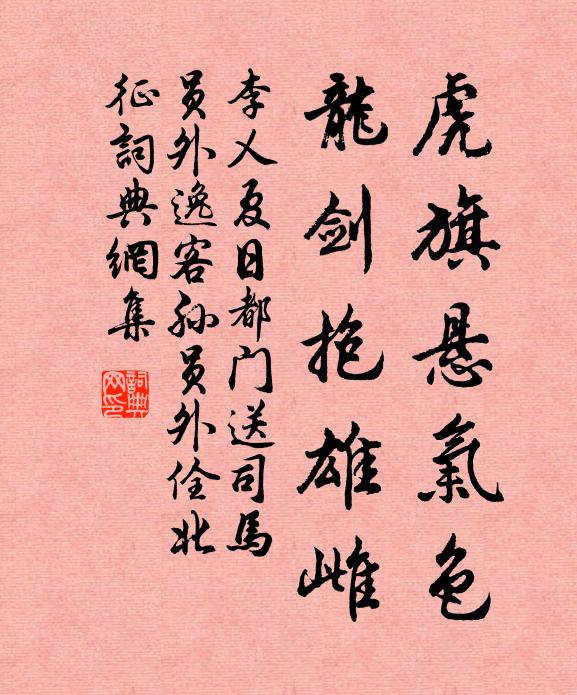 虎旗悬氣色
龍剑抱雄雌
李乂夏日都门送司馬
員外逸客孙員外佺北
征詞典網集
詞典
网印